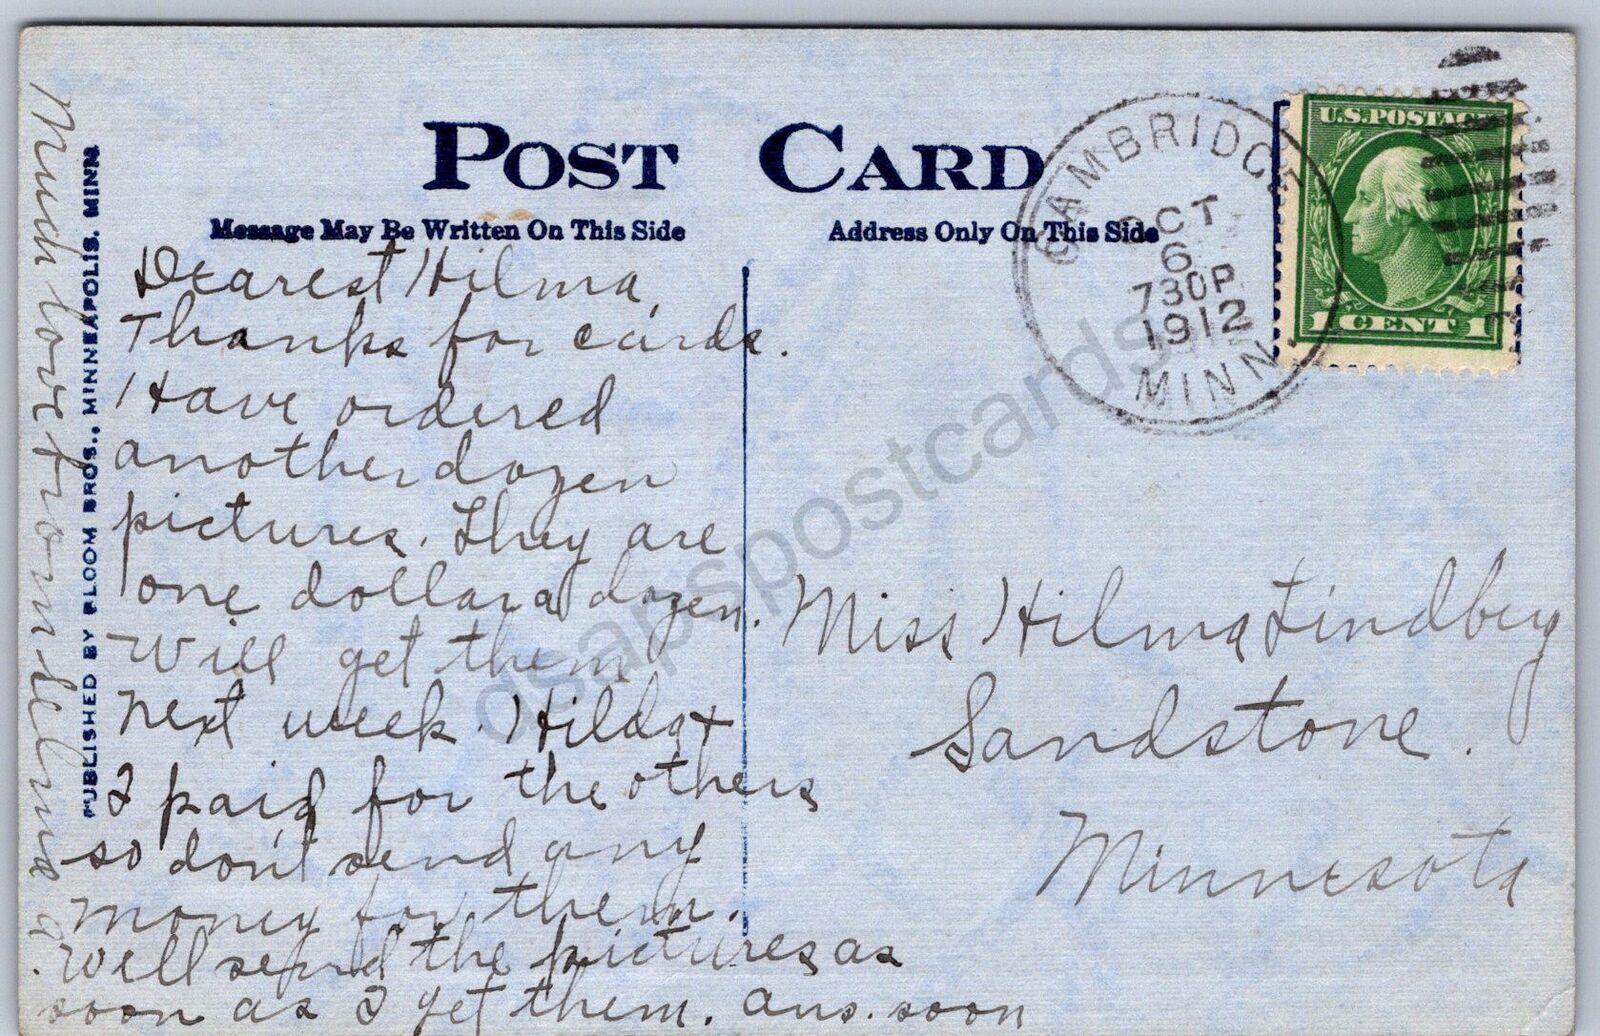 POST CARD
Message May Be Written On This Side
Address Only On This Side
PUBLISHED BY BLOOM BROS., MINNEAPOLIS, MINN.
CAMBRIDGE
OCT
6
730P
1912
MINN.
U.S. POSTAGE
1 CENT 1
Dearest Hilma,
Thanks for cards.
Have ordered
another dozen
pictures. They are
one dollar a dozen.
Will get them
next week. Hilda +
I paid for the others
so don't send any
money for them.
Will send the pictures as
soon as I get them. ans. soon
Much love from Selma
Miss Hilma Lindberg
Sandstone.
Minnesota
dsapspostcards